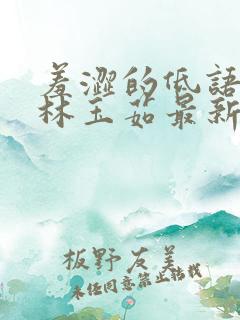 羞澀的低語
林玉茹最新
板野友美
未经同意禁止转载